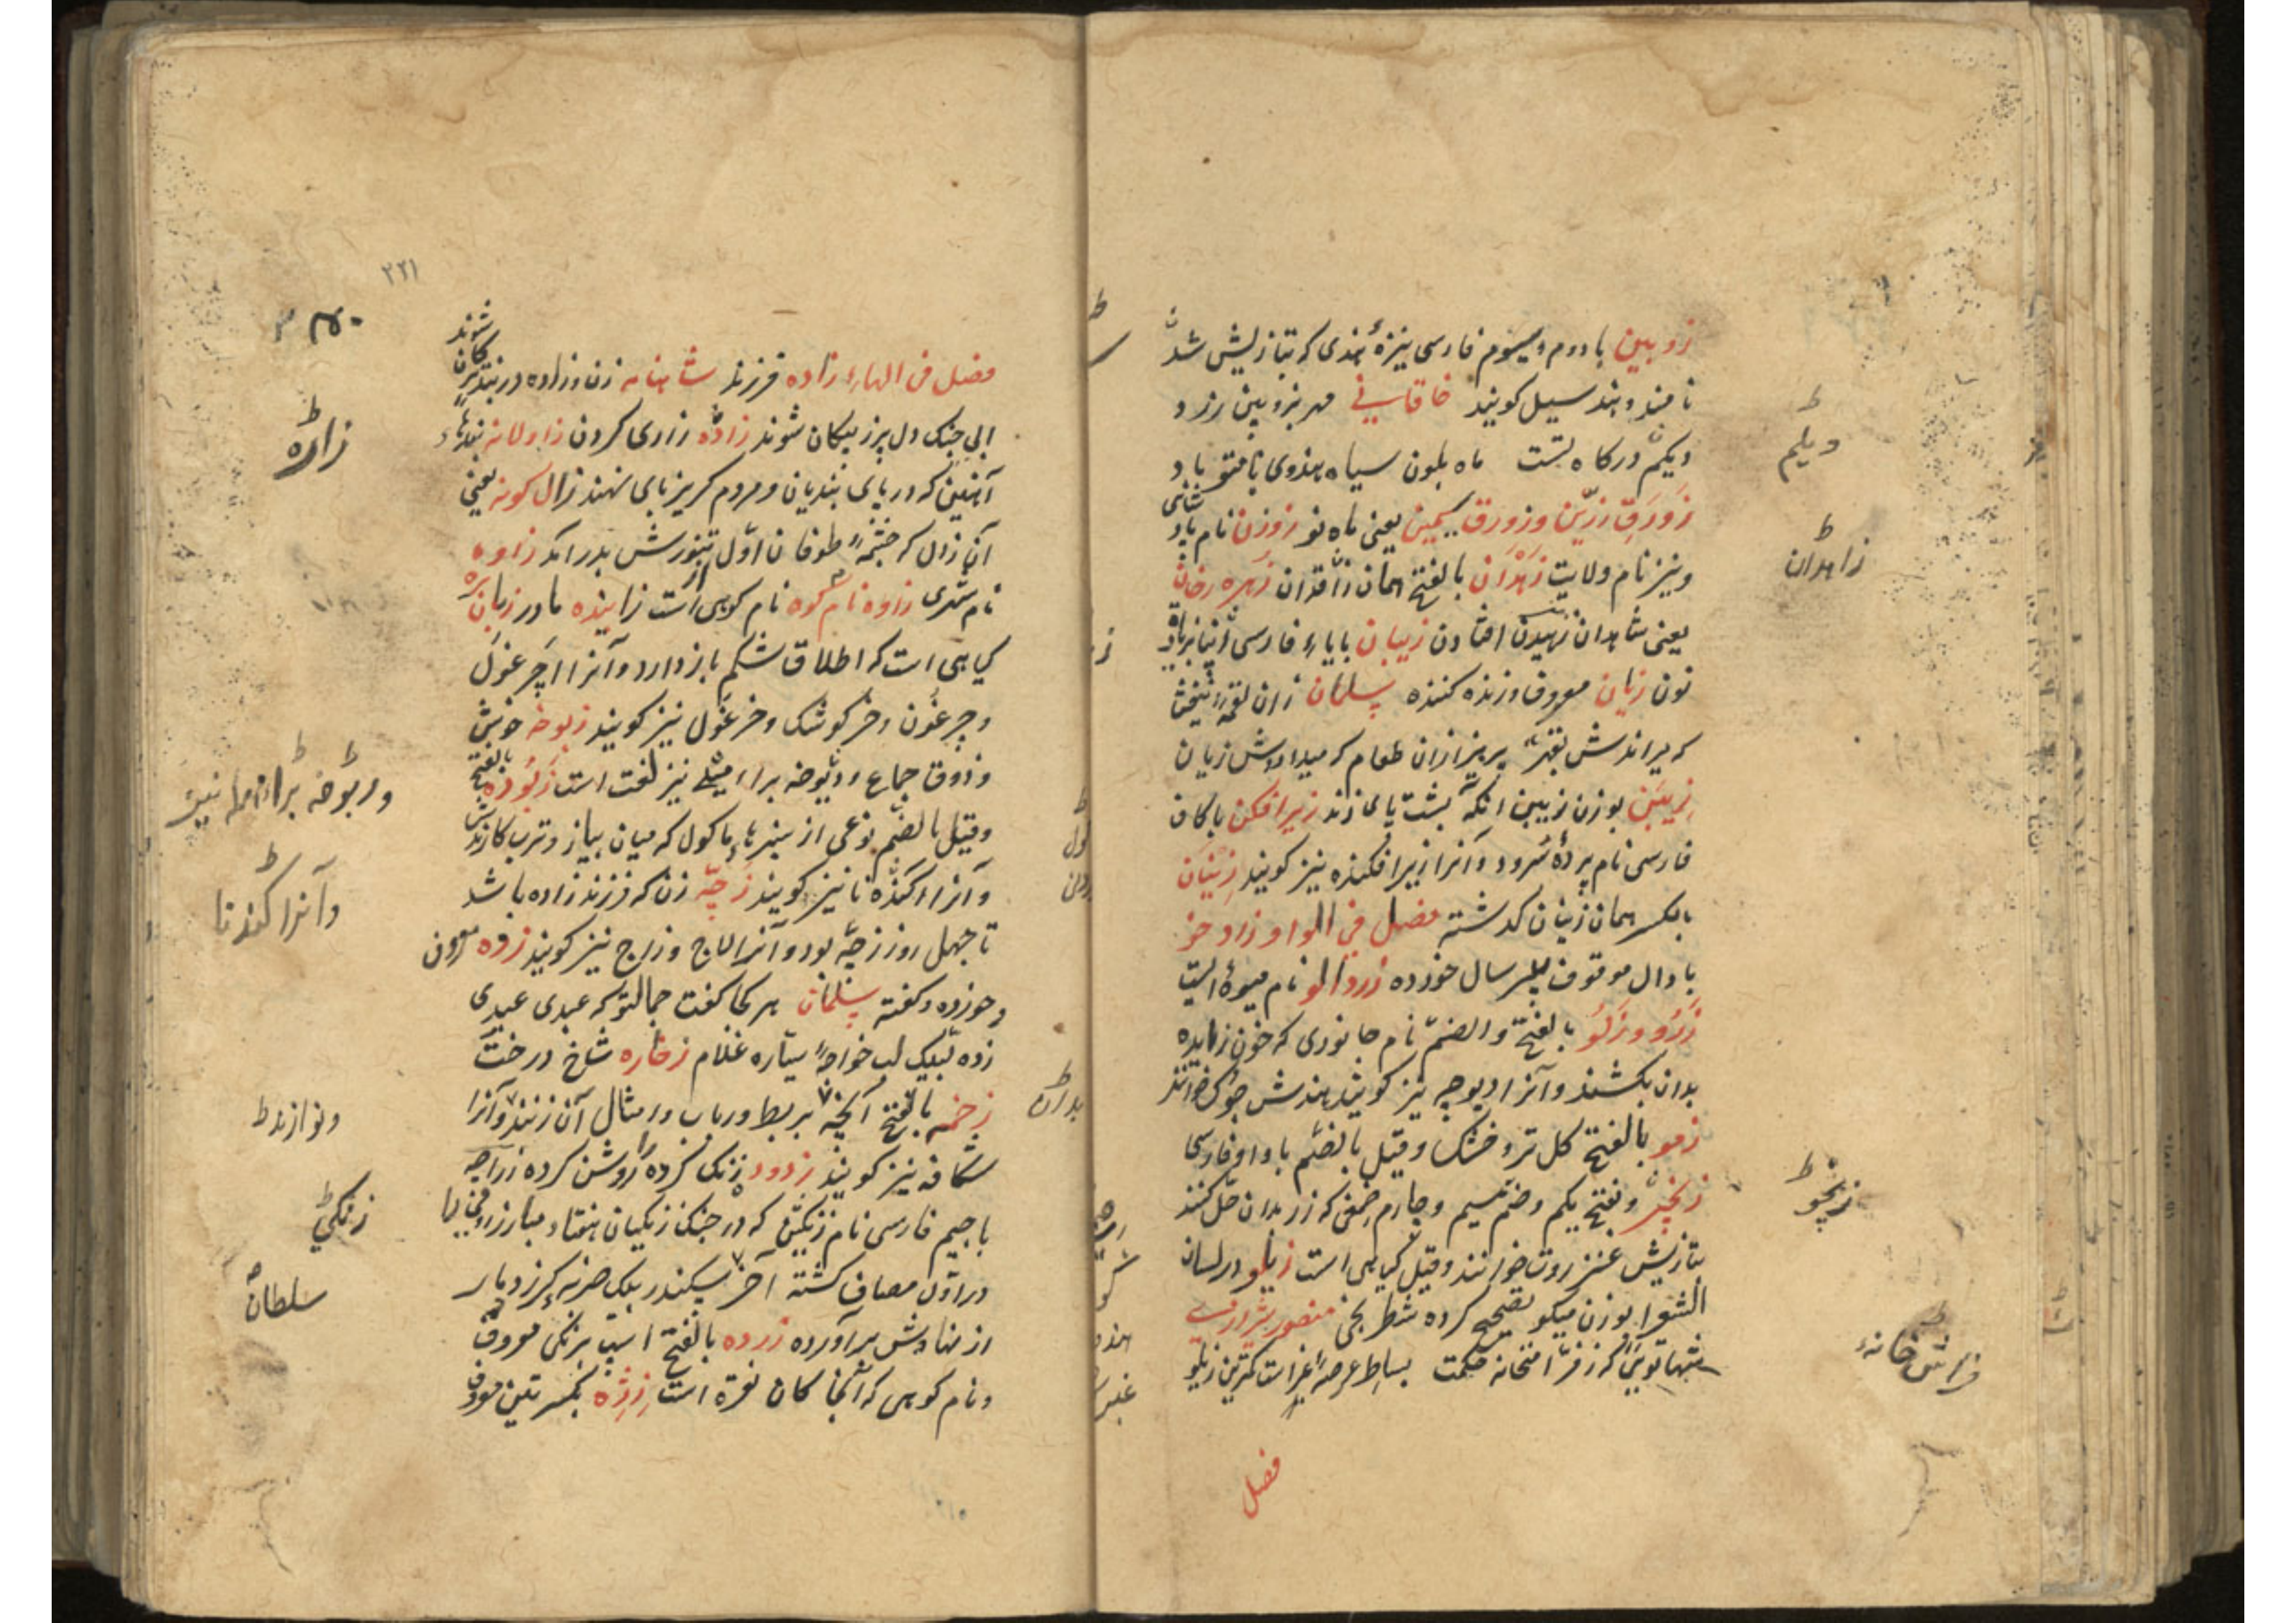 زوبین با دوم و سیوم فارسی نیزهٔ هندی که بتازیش شل
نامند و هند سیل کویند خاقانی مهر بزوبین زرد
دیلم درکاه تست ماه بلون سیاه هندوی بام تو باد
زورق زرین و زورق سیمین یعنی ماه نو زوزن نام
و نیز نام ولایت زهدان بالفتح همان زاقدان زهره رخان
یعنی شاهدان زهیدن افتادن زیبان بایاء فارسی
نون زیان معروف و زنده کننده سلمان زان لقمهٔ
که براندش بقهر پرهیز ازان طعام که میدادش زیان
زیبین بوزن زیبین آنکه پشت پای زند زیرافکن باکاف
فارسی نام پردهٔ سرود و آنرا زیرافکنده نیز کویند زینان
بالکسر همان زنیان کذشته فصل فی الواو زاد خو
با دال موقوف پیر سال خورده زردالو نام میوه ایست
زرو و زلو بالفتح والضم نام جانوری که خون زایده
بدان بکشند و آنرا دیوچه نیز کویند هندش جوک خوانند
زمو بالفتح کل تر و خشک و قیل بالضم با واو فارسی
زنجرو بفتح یکم و ضم سیم و چارم صمغی که زر بدان حل کنند
بتازیش عنزروت خوانند و قیل کیاهی است زیلو در لسان
الشعرا بوزن میکو تصحیح کرده شطرنجی منصور شیرازی
شها توئی که ز فراشخانه حکمت بساط عرصهٔ غبراست کمترین زیلو
فصل
دیلم
زاهدان
زنجرو
فراش خانهٔ
۲۲۱
فصل فی الهاء زاده فرزند شاهنامه زن و زاده در بند
ابی جنک دل پر ز پیکان شوند زاده زاری کردن زاولانه بندهاء
آهنین که در پای بندیان و مردم کریز پای نهند زال کوفه یعنی
آن زال که چشمهٔ طوفان اول از تنورش بدر آمد زاوه
نام شهری زاوه نام کوه نام کوهی است زاینده مادر زبان بره
کیاهی است که اطلاق شکم باز دارد و آنرا چرغول
و چرغون و خرکوشک و خرغول نیز کویند زبوخه خوشی
و ذوق جماع و ربوخه براء مهمله نیز لغت است زبوده بالفتح
و قیل بالضم نوعی از سبزیها ماکول که میان پیاز و ترب کارند
و آنرا کندنا نیز کویند زچه زن که فرزند زاده باشد
تا چهل روز زچه بود و آنرا لاج و زاج نیز کویند زده معروف
و خورده و کفته سلمان هر کجا کفت جمال تو که عبدی عبدی
زده لبیک لب خواجهٔ سیاره غلام زخاره شاخ درخت
زخمه بالفتح آنچه بربط و رباب و امثال آن زنند و آنرا
شکافه نیز کویند زدود زنک کرده را روشن کرده زراجه
با جیم فارسی نام زنکی که در جنک زنکیان هفتاد مبارز
در اول مصاف کشته آخر سکندر بیک ضربه کرز دمار
از نهادش برآورده زرده بالفتح اسپ برنکی معروف
و نام کوهی که آنجا کان نقره است زرژه بکسرتین معروف
زاده
و ربوخه براء مهمله نیز
و آنرا کندنا
و نوازند
زنکی
سلطان
بدان